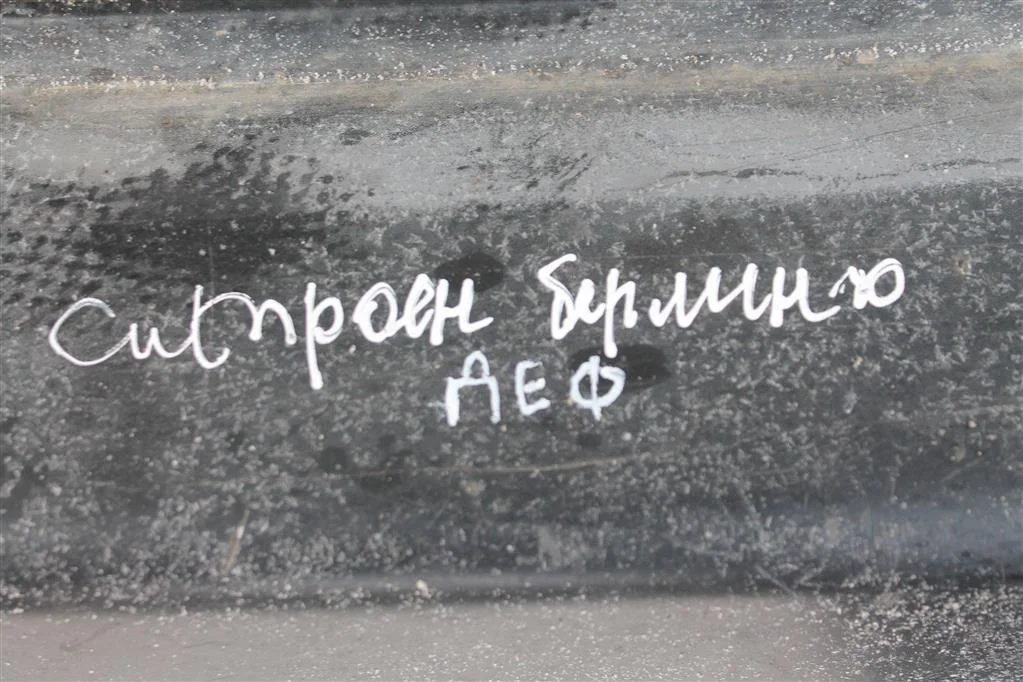 Ситроен берлинго
ДЕФ